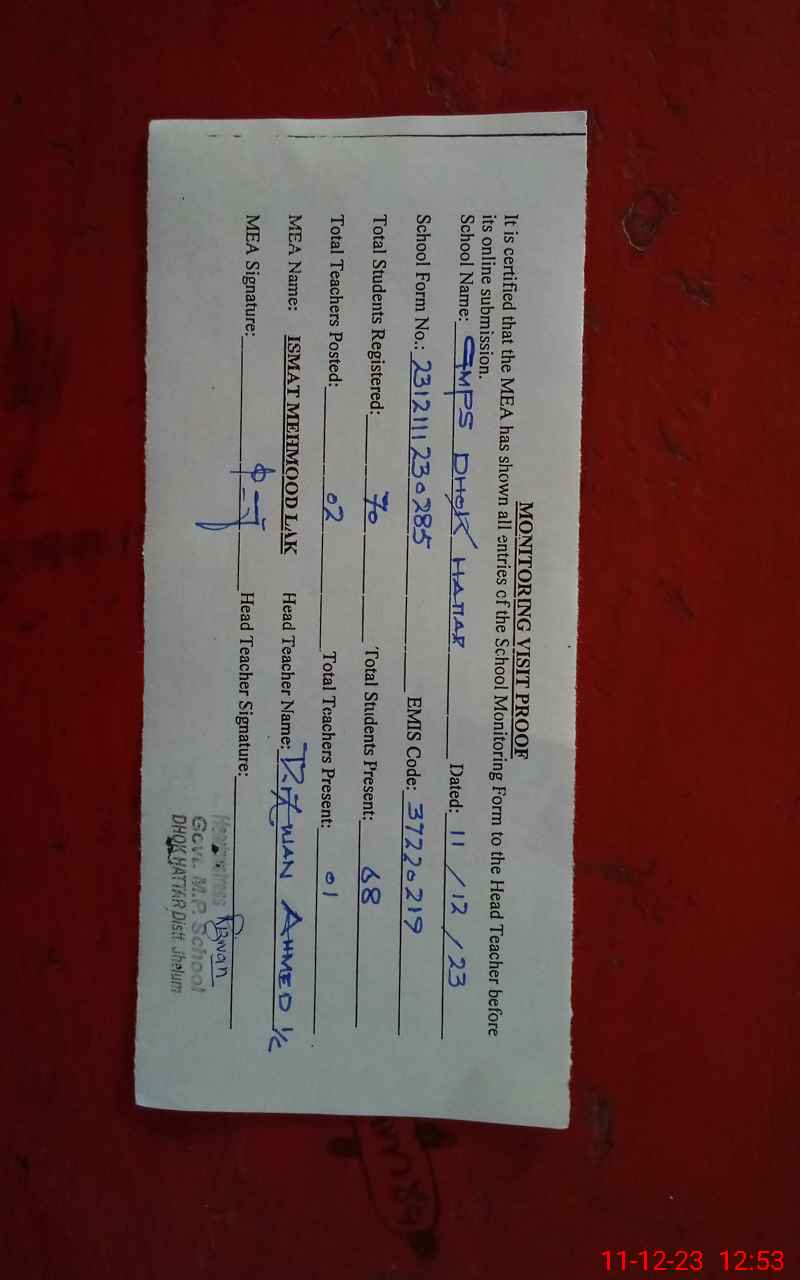 MONITORING VISIT PROOF
It is certified that the MEA has shown all entries of the School Monitoring Form to the Head Teacher before
its online submission.
School Name: GMPS DHOK HATTAR Dated: 11/12/23
School Form No.: 2312111230285 EMIS Code: 37220219
Total Students Registered: 70 Total Students Present: 68
Total Teachers Posted: 02 Total Teachers Present: 01
MEA Name: ISMAT MEHMOOD LAK Head Teacher Name: RIZWAN AHMED I/C
MEA Signature: Head Teacher Signature: Rizwan
Headmistress
Govt. M.P. School
DHOK HATTAR Distt Jhelum
11-12-23 12:53